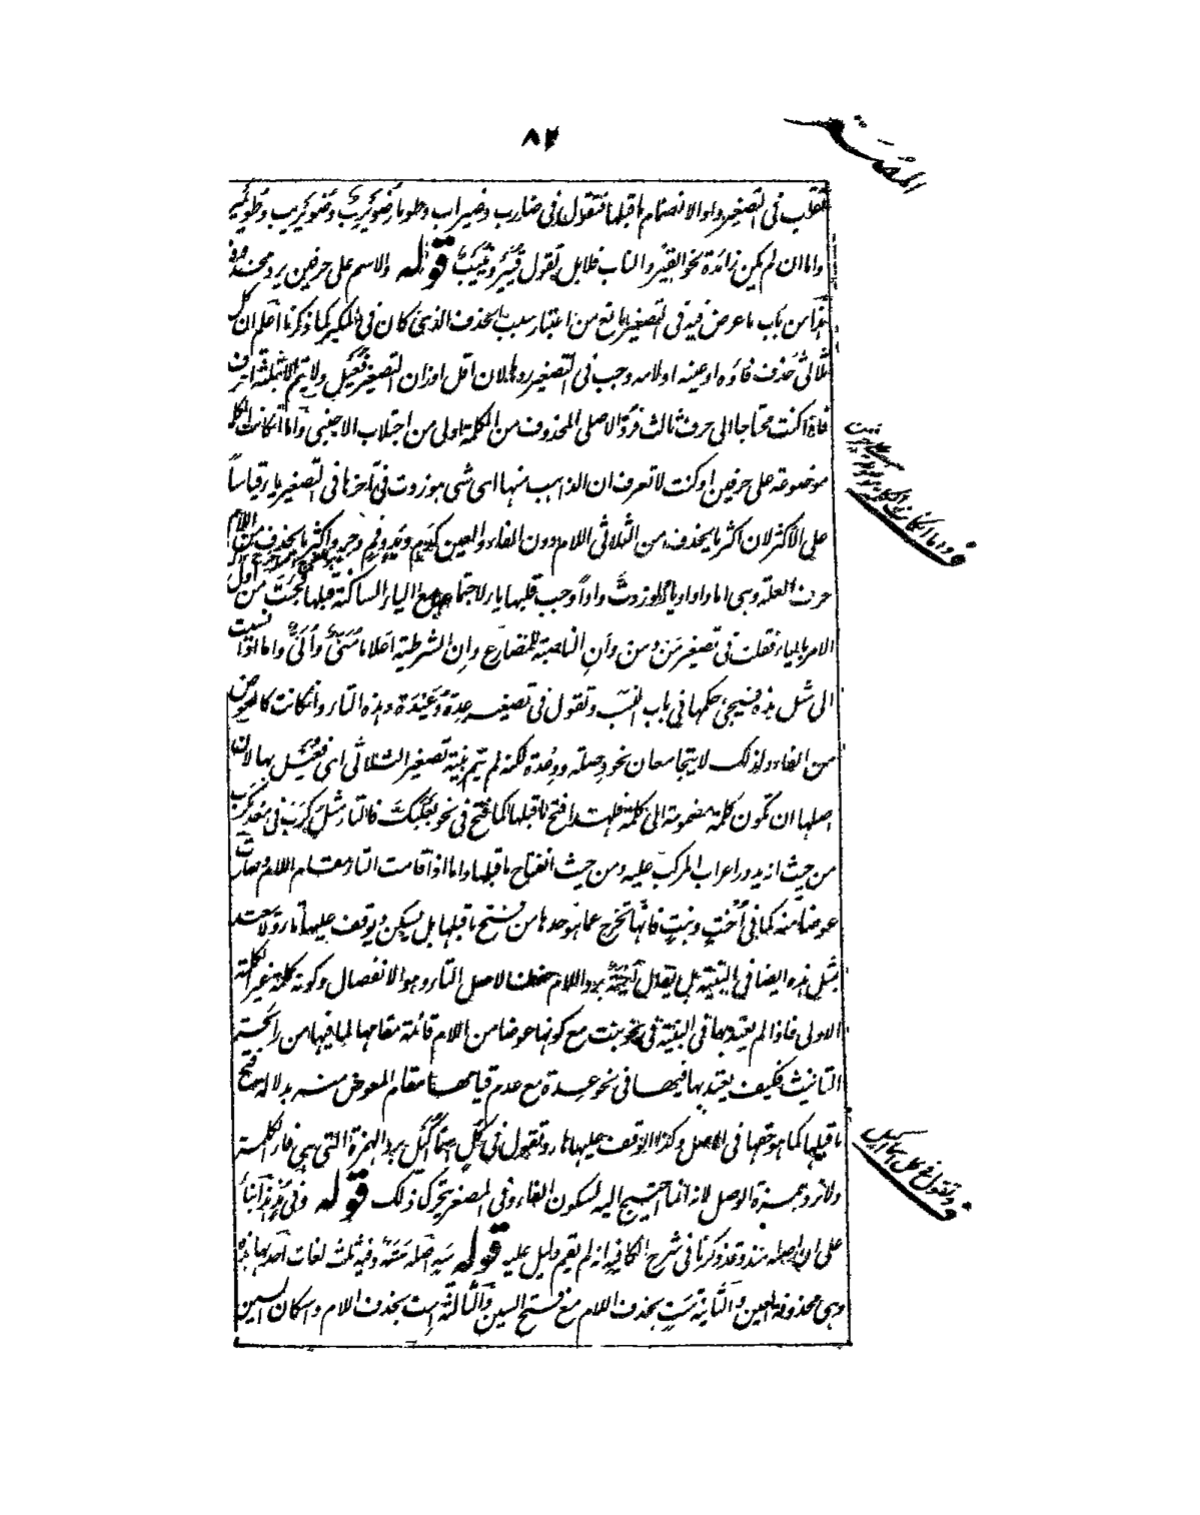 ٨٢
المصغر
تقلب فى التصغير واوا لانضمام ما قبلها فتقول فى ضارب وضيراب وطومار ضويرب وضويريب وطويمير
واما ان لم يكن زائدة نحو القير والناب فلا بل تقول قيير ونييب قوله والاسم على حرفين يرد محذوفه
من باب ما عرض فيه فى التصغير مانع من اعتبار سبب الحذف الذى كان فى المكبر كما ذكرنا اعلم ان كل
ثلاثى حذف فاؤه او عينه او لامه وجب فى التصغير ردها لان اقل اوزان التصغير فعيل ولا يتم الا بثلثة احرف
فاذا كنت محتاجا الى حرف ثالث فرد الاصلى المحذوف من الكلمة اولى من اجتلاب الاجنبى واما ان كانت الكلمة
موضوعة على حرفين او كنت لا تعرف ان الذاهب منها اى شى هو زدت فى آخرها فى التصغير ياء قياسا
على الاكثر لان اكثر ما يحذف من الثلاثى اللام دون الفاء والعين كدم ويد وفم وحر واكثر ما يحذف من اللام
حرف العلة وهى اما واو او ياء ولو زدت واوا وجب قلبها ياء لاجتماعها مع الياء الساكنة قبلها فجئت من اول
الامر بالياء فقلت فى تصغير من ومن وان الناصبة للمضارع وان الشرطية اعلاما منى وانى واما اذا نسبت
الى مثل هذه فسيجئ حكمها فى باب النسب وتقول فى تصغير عدة وعيدة وهذه التاء وان كانت كالعوض
من الفاء ولذلك لا يتجامعان نحو وصلة ووعدة لكنه لم يتم بنية تصغير الثلاثى اى فعيل بها لان
اصلها ان تكون كلمة مضمومة الى كلمة فلهذا فتح ما قبلها كما فتح فى نحو بعلبك فالتاء مثل كرب فى معديكرب
من حيث انه يدور اعراب المركب عليه ومن حيث انفتاح ما قبلها واما اذا قامت التاء مقام اللام وصارت
عوضا منه كما فى اخت وبنت فانها تخرج عما هو حدها من فتح ما قبلها بل يسكن ويوقف عليها تاء ولا يعتد
بمثل هذه ايضا فى البنية بل يقال اخية برد اللام حفظا لاصل التاء وهو الانفصال وكونه كلمة غير الكلمة
الاولى فاذا لم يعتد بها فى البنية فى نحو بنت مع كونها عوضا من اللام قائمة مقامها لما فيها من رائحة
التانيث فكيف يعتد بها فيها فى نحو عدة مع عدم قيامها مقام المعوض منه بدلالة فتح
ما قبلها كما هو حقها فى الاصل وكذا الوقف عليها هاء وتقول فى كل اسما اكيل برد الهمزة التى هى فاء الكلمة
ولا ترد همزة الوصل لانه انما احتيج اليه لسكون الفاء وفى المصغر يتحرك ذلك قوله وفى مذ منيذ بناء
على ان اصله منذ وقد ذكرنا فى شرح الكافية انه لم يقم دليل عليه قوله سه اصله سته وفيه ثلث لغات احديها هذه
وهى محذوفة العين والثانية ست بحذف اللام مع فتح السين والثالثة است بحذف اللام واسكان السين
وتقول فى كل اسما اكيل